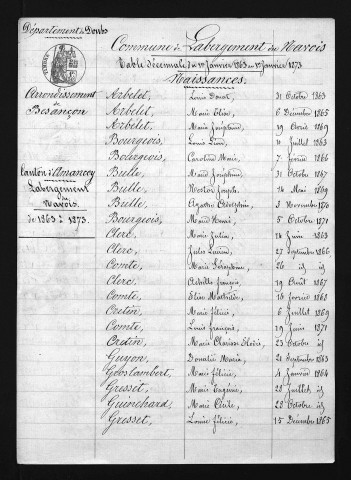 Département du Doubs
Commune de Labergement du Navois
Table décennale du 1er Janvier 1863 au 1er Janvier 1873
Naissances.
Arrondissement de Besançon
Canton d'Amancey
Labergement Navois.
de 1863 à 1873.
Arbelet, Louis 31 Octobre 1863
Arbelet, Marie Elise, 6 Décembre 1865
Arbelet, Marie Joséphine 19 Avril 1869
Bourgeois, Louis Léon, 10 Juillet 1863
Bourgeois, Caroline Marie, 7 février 1866
Bulle, Marie Joséphine 31 Octobre 1867
Bulle, Nestor Joseph. 14 Mai 1869
Bulle, Agathe Adolphine, 3 Novembre 1870
Bourgeois, Marie 5 Octobre 1871
Clerc, Marie Julia, 14 Juin 1863
Clerc, Jules Lucien, 27 Septembre 1866
Comte, Marie Séraphine, 26 id id
Clerc, Achille françois, 19 Août 1867
Comte, Elise Mathilde, 16 février 1868
Cretin, Marie félicie, 6 Juillet 1869
Comte, Louis françois, 19 Juin 1871
Cretin, Marie Clarisse Elodie, 23 Octobre id
Guyon, Donatile Maria, 21 Septembre 1863
Gooslambert, Marie félicie, 4 Janvier 1864
Gresset, Marie Eugénie, 28 Juillet id
Guinchard, Marie Cécile, 22 Octobre id
Gresset, Louise félicie, 15 Décembre 1865